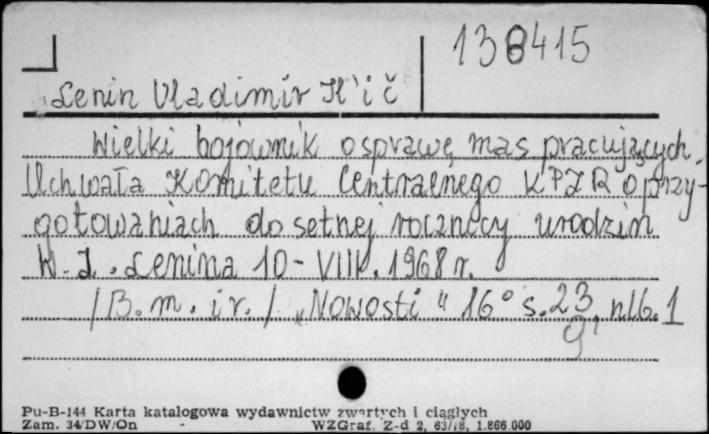 138415
Lenin Vladimir Il'ič
Wielki bojownik o sprawę mas pracujących.
Uchwała Komitetu Centralnego KPZR o przy-
gotowaniach do setnej rocznicy urodzin
W. I. Lenina 10-VIII. 1968 r.
/B. m. i r./ „Nowosti" 16° s. 23, nlb. 1
Pu-B-144 Karta katalogowa wydawnictw zwartych i ciągłych
Zam. 34/DW/On WZGraf. Z-d 2, 63/78, 1.866.000